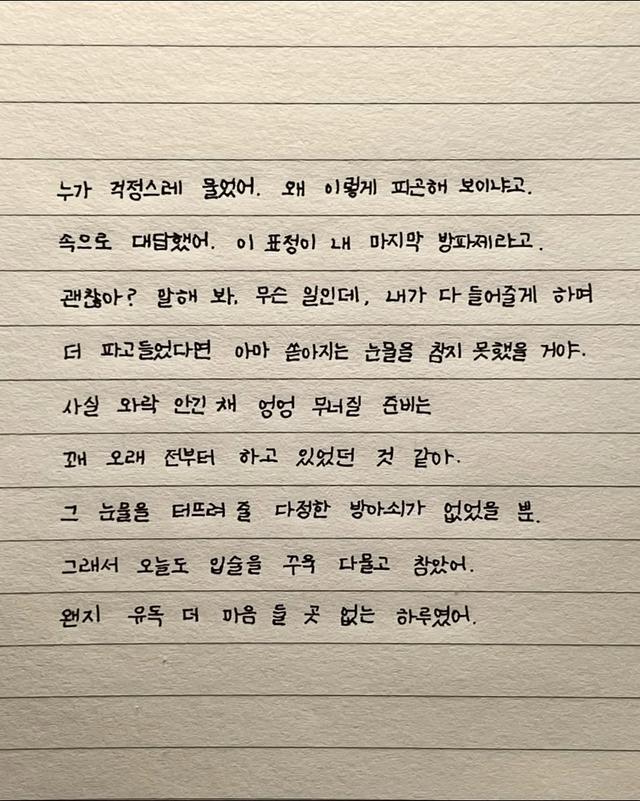 누가 걱정스레 물었어. 왜 이렇게 피곤해 보이냐고.
속으로 대답했어. 이 표정이 내 마지막 방파제라고.
괜찮아? 말해 봐, 무슨 일인데, 내가 다 들어줄게 하며
더 파고들었다면 아마 쏟아지는 눈물을 참지 못했을 거야.
사실 와락 안긴 채 엉엉 무너질 준비는
꽤 오래 전부터 하고 있었던 것 같아.
그 눈물을 터뜨려 줄 다정한 방아쇠가 없었을 뿐.
그래서 오늘도 입술을 꾸욱 다물고 참았어.
왠지 유독 더 마음 둘 곳 없는 하루였어.